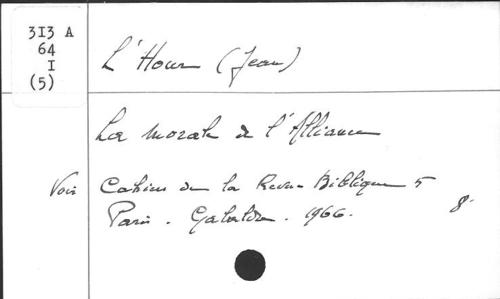 313 A
64
I
(5)
L'Hour (Jean)
La morale de l'Alliance
Voir Cahiers de la Revue Biblique 5
Paris. Gabalda. 1966. 8°